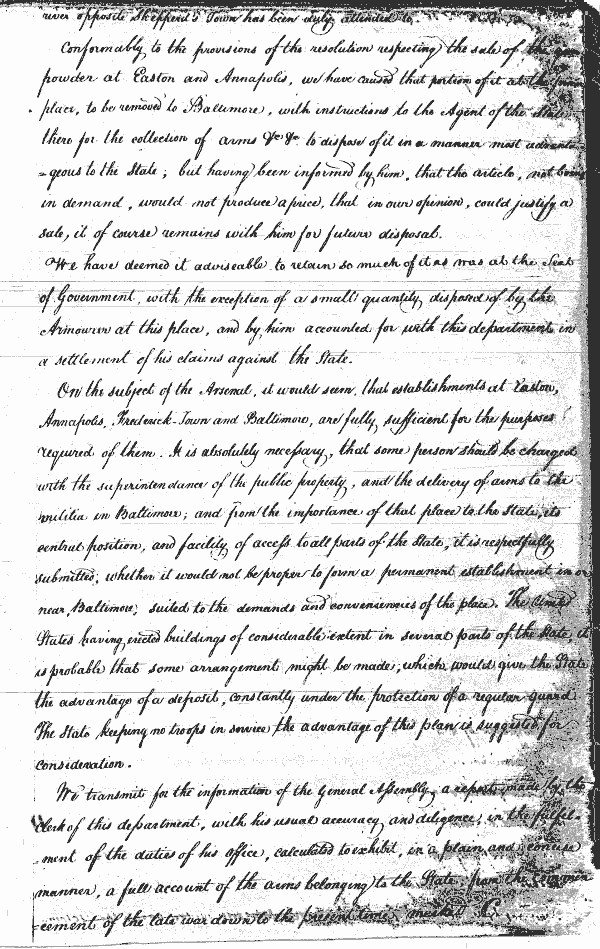 river opposite Shepperd's Town has been duly attended to.
Conformably to the provisions of the resolution respecting the sale of the
powder at Easton and Annapolis, we have caused that portion of it at the
place, to be removed to Baltimore, with instructions to the Agent of the State
there for the collection of arms &c &c to dispose of it in a manner most advanta-
-geous to the State; but having been informed by him, that the article, not being
in demand, would not produce a price, that in our opinion, could justify a
sale, it of course remains with him for future disposal.
We have deemed it adviseable to retain so much of it as was at the Seat
of Government, with the exception of a small quantity disposed of by the
Armourer at this place, and by him accounted for with this department in
a settlement of his claims against the State.
On the subject of the Arsenal, it would seem, that establishments at Easton,
Annapolis, Frederick-Town and Baltimore, are fully sufficient for the purposes
required of them. It is absolutely necessary, that some person should be charged
with the superintendance of the public property, and the delivery of arms to the
militia in Baltimore; and from the importance of that place to the State, its
central position, and facility of access to all parts of the State, it is respectfully
submitted, whether it would not be proper to form a permanent establishment in or
near, Baltimore, suited to the demands and conveniencies of the place. The United
States having erected buildings of considerable extent in several parts of the State, it
is probable that some arrangement might be made, which would give the State
the advantage of a deposit, constantly under the protection of a regular guard
The State keeping no troops in service the advantage of this plan is suggested for
consideration.
We transmit for the information of the General Assembly, a report, made by the
Clerk of this department, with his usual accuracy and diligence, in the fulfil-
-ment of the duties of his office, calculated to exhibit, in a plain and concise
manner, a full account of the arms belonging to the State, from the commen
-cement of the late war down to the present time, marked